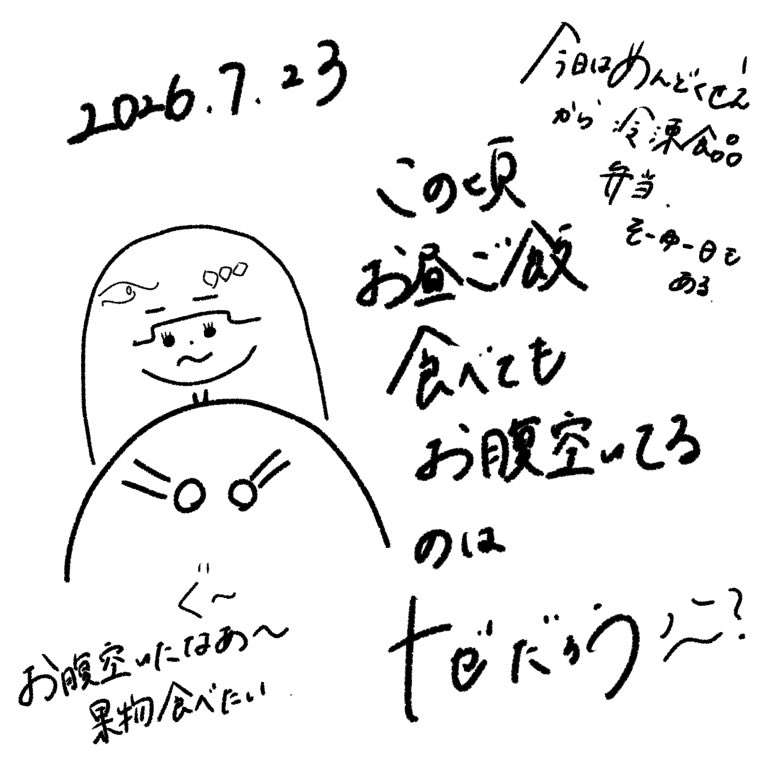 2026.7.23
今日はめんどくせえ
から冷凍食品
弁当.
そーゆー日も
ある.
この頃
お昼ご飯
食べても
お腹空いてる
のは
なぜだろう?
ぐ〜
お腹空いたなあ〜
果物食べたい.